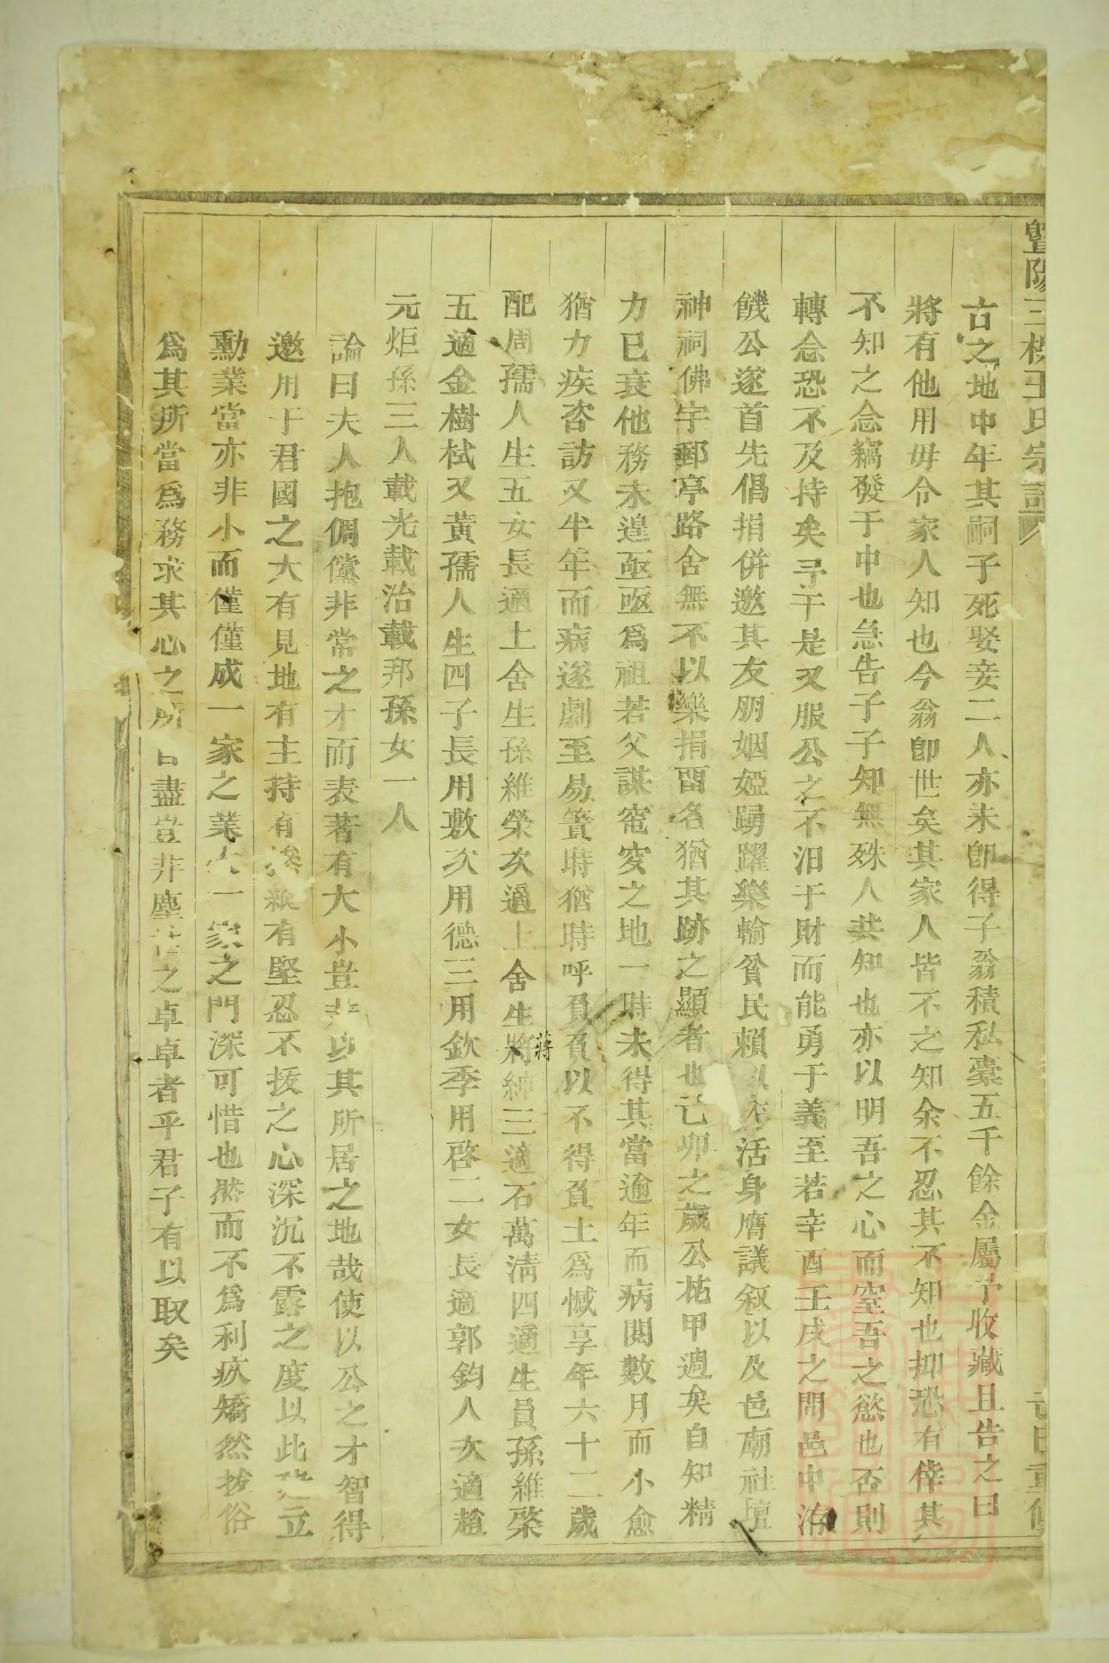 暨陽三檪王氏宗譜
古之地中年其嗣子死娶妾二人亦未卽得子翁積私橐五千餘金屬予收藏且告之曰
將有他用毋令家人知也今翁卽世矣其家人皆不之知余不忍其不知也抑恐有倖其
不知之念竊發于中也急告子子知無殊人共知也亦以明吾之心而窒吾之慾也否則
轉念恐不及持矣予于是又服公之不汨于財而能勇于義至若辛酉壬戌之間邑中洊
饑公遂首先倡捐併邀其友朋姻婭踴躍樂輸貧民賴以存活身膺議叙以及邑廟社壇
神祠佛宇郵亭路舍無不以樂捐畱名猶其跡之顯者也己卯之歲公花甲週矣自知精
力已衰他務未遑亟亟爲祖若父謀窀穸之地一時未得其當逾年而病閱數月而小愈
猶力疾咨訪又半年而病遂劇至易簀時猶時呼負負以不得負土爲憾享年六十二歲
配周孺人生五女長適上舍生孫維榮次適上舍生蔣紳三適石萬淸四適生員孫維棨
五適金樹栻又黃孺人生四子長用敷次用德三用欽季用啓二女長適郭鈞人次適趙
元炬孫三人載光載治載邦孫女一人
論曰夫人抱倜儻非常之才而表著有大小豈非以其所居之地哉使以公之才智得
邀用于君國之大有見地有主持有 有堅忍不拔之心深沉不露之度以此 立
勳業當亦非小而僅僅成一家之業大一家之門深可惜也然而不爲利疚矯然拔俗
爲其所當爲務求其心之所 盡豈非塵俗之卓卓者乎君子有以取矣